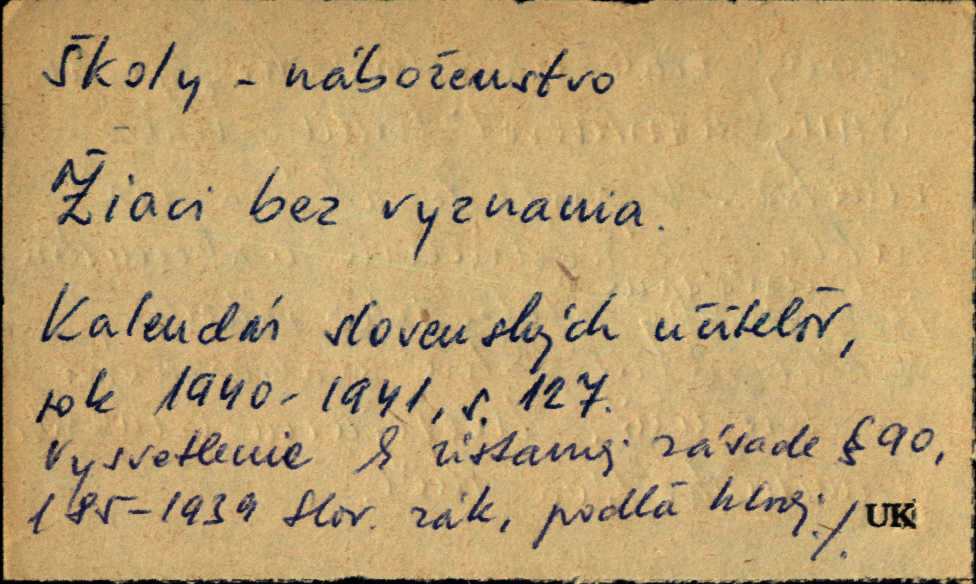 Školy - náboženstvo
Žiaci bez vyznania.
Kalendár slovenských učiteľov,
rok 1940-1941, s. 127.
Vysvetlenie k zásade § 90,
185-1939 Slov. zák, podľa
UK